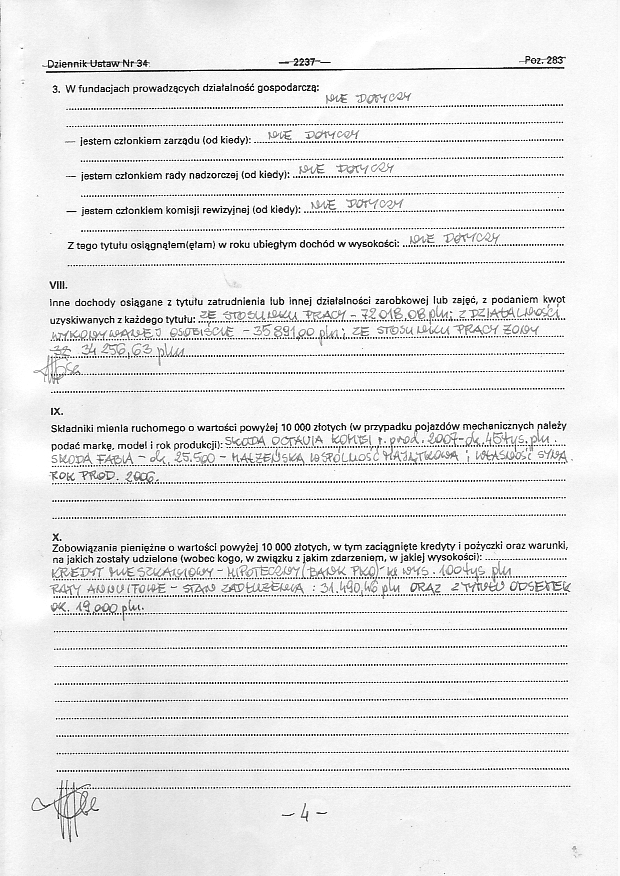 Dziennik Ustaw Nr 34 — 2237 — Poz. 283
3. W fundacjach prowadzących działalność gospodarczą:
NIE DOTYCZY
— jestem członkiem zarządu (od kiedy): NIE DOTYCZY
— jestem członkiem rady nadzorczej (od kiedy): NIE DOTYCZY
— jestem członkiem komisji rewizyjnej (od kiedy): NIE DOTYCZY
Z tego tytułu osiągnąłem(ęłam) w roku ubiegłym dochód w wysokości: NIE DOTYCZY
VIII.
Inne dochody osiągane z tytułu zatrudnienia lub innej działalności zarobkowej lub zajęć, z podaniem kwot
uzyskiwanych z każdego tytułu: ZE STOSUNKU PRACY – 72018,08 pln; Z DZIAŁALNOŚCI
WYKONYWANEJ OSOBIŚCIE – 35891,00 pln; ZE STOSUNKU PRACY ŻONY
34 256,63 pln
IX.
Składniki mienia ruchomego o wartości powyżej 10 000 złotych (w przypadku pojazdów mechanicznych należy
podać markę, model i rok produkcji): SKODA OCTAVIA KOMBI r. prod. 2007 – ok. 45 tys. pln.
SKODA FABIA – ok. 25.500 – MAŁŻEŃSKA WSPÓLNOŚĆ MAJĄTKOWA i WŁASNOŚĆ SYNA.
ROK PROD. 2006.
X.
Zobowiązania pieniężne o wartości powyżej 10 000 złotych, w tym zaciągnięte kredyty i pożyczki oraz warunki,
na jakich zostały udzielone (wobec kogo, w związku z jakim zdarzeniem, w jakiej wysokości):
KREDYT MIESZKANIOWY – HIPOTECZNY (BANK PKO) – w wys. 100 tys pln
RATY ANNUITOWE – STAN ZADŁUŻENIA : 31.490,46 pln ORAZ Z TYTUŁU ODSETEK
OK. 19.000 pln.
– 4 –